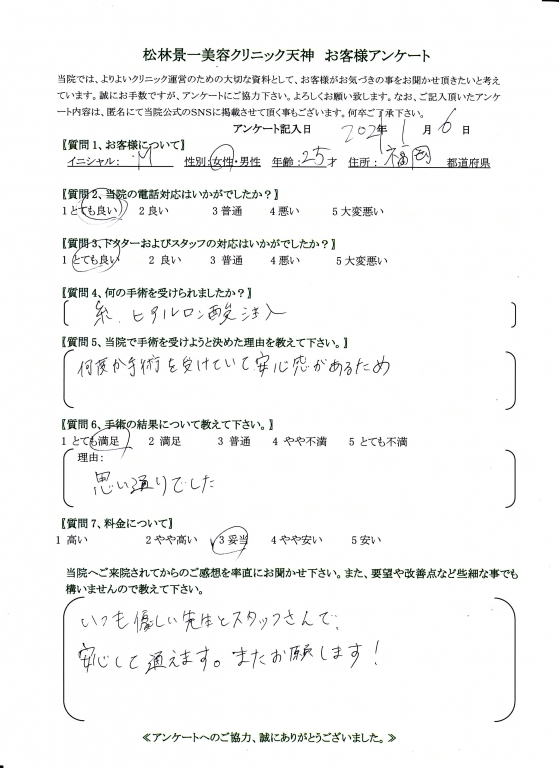 松林景一美容クリニック天神　お客様アンケート
当院では、よりよいクリニック運営のための大切な資料として、お客様がお気づきの事をお聞かせ頂きたいと考え
ています。誠にお手数ですが、アンケートにご協力下さい。よろしくお願い致します。なお、ご記入頂いたアンケ
ート内容は、匿名にて当院公式のSNSに掲載させて頂く事もございます。何卒ご了承下さい。
アンケート記入日　2021年　1月　6日
【質問1、お客様について】
イニシャル：　M　性別：女性・男性　年齢：25才　住所：福岡　都道府県
【質問2、当院の電話対応はいかがでしたか？】
1 とても良い　2 良い　3 普通　4 悪い　5 大変悪い
【質問3、ドクターおよびスタッフの対応はいかがでしたか？】
1 とても良い　2 良い　3 普通　4 悪い　5 大変悪い
【質問4、何の手術を受けられましたか？】
糸、ヒアルロン酸注入
【質問5、当院で手術を受けようと決めた理由を教えて下さい。】
何度か手術を受けていて安心感があるため
【質問6、手術の結果について教えて下さい。】
1 とても満足　2 満足　3 普通　4 やや不満　5 とても不満
理由：
思い通りでした
【質問7、料金について】
1 高い　2 やや高い　3 妥当　4 やや安い　5 安い
当院へご来院されてからのご感想を率直にお聞かせ下さい。また、要望や改善点など些細な事でも
構いませんので教えて下さい。
いつも優しい先生とスタッフさんで、
安心して通えます。またお願します！
≪アンケートへのご協力、誠にありがとうございました。≫